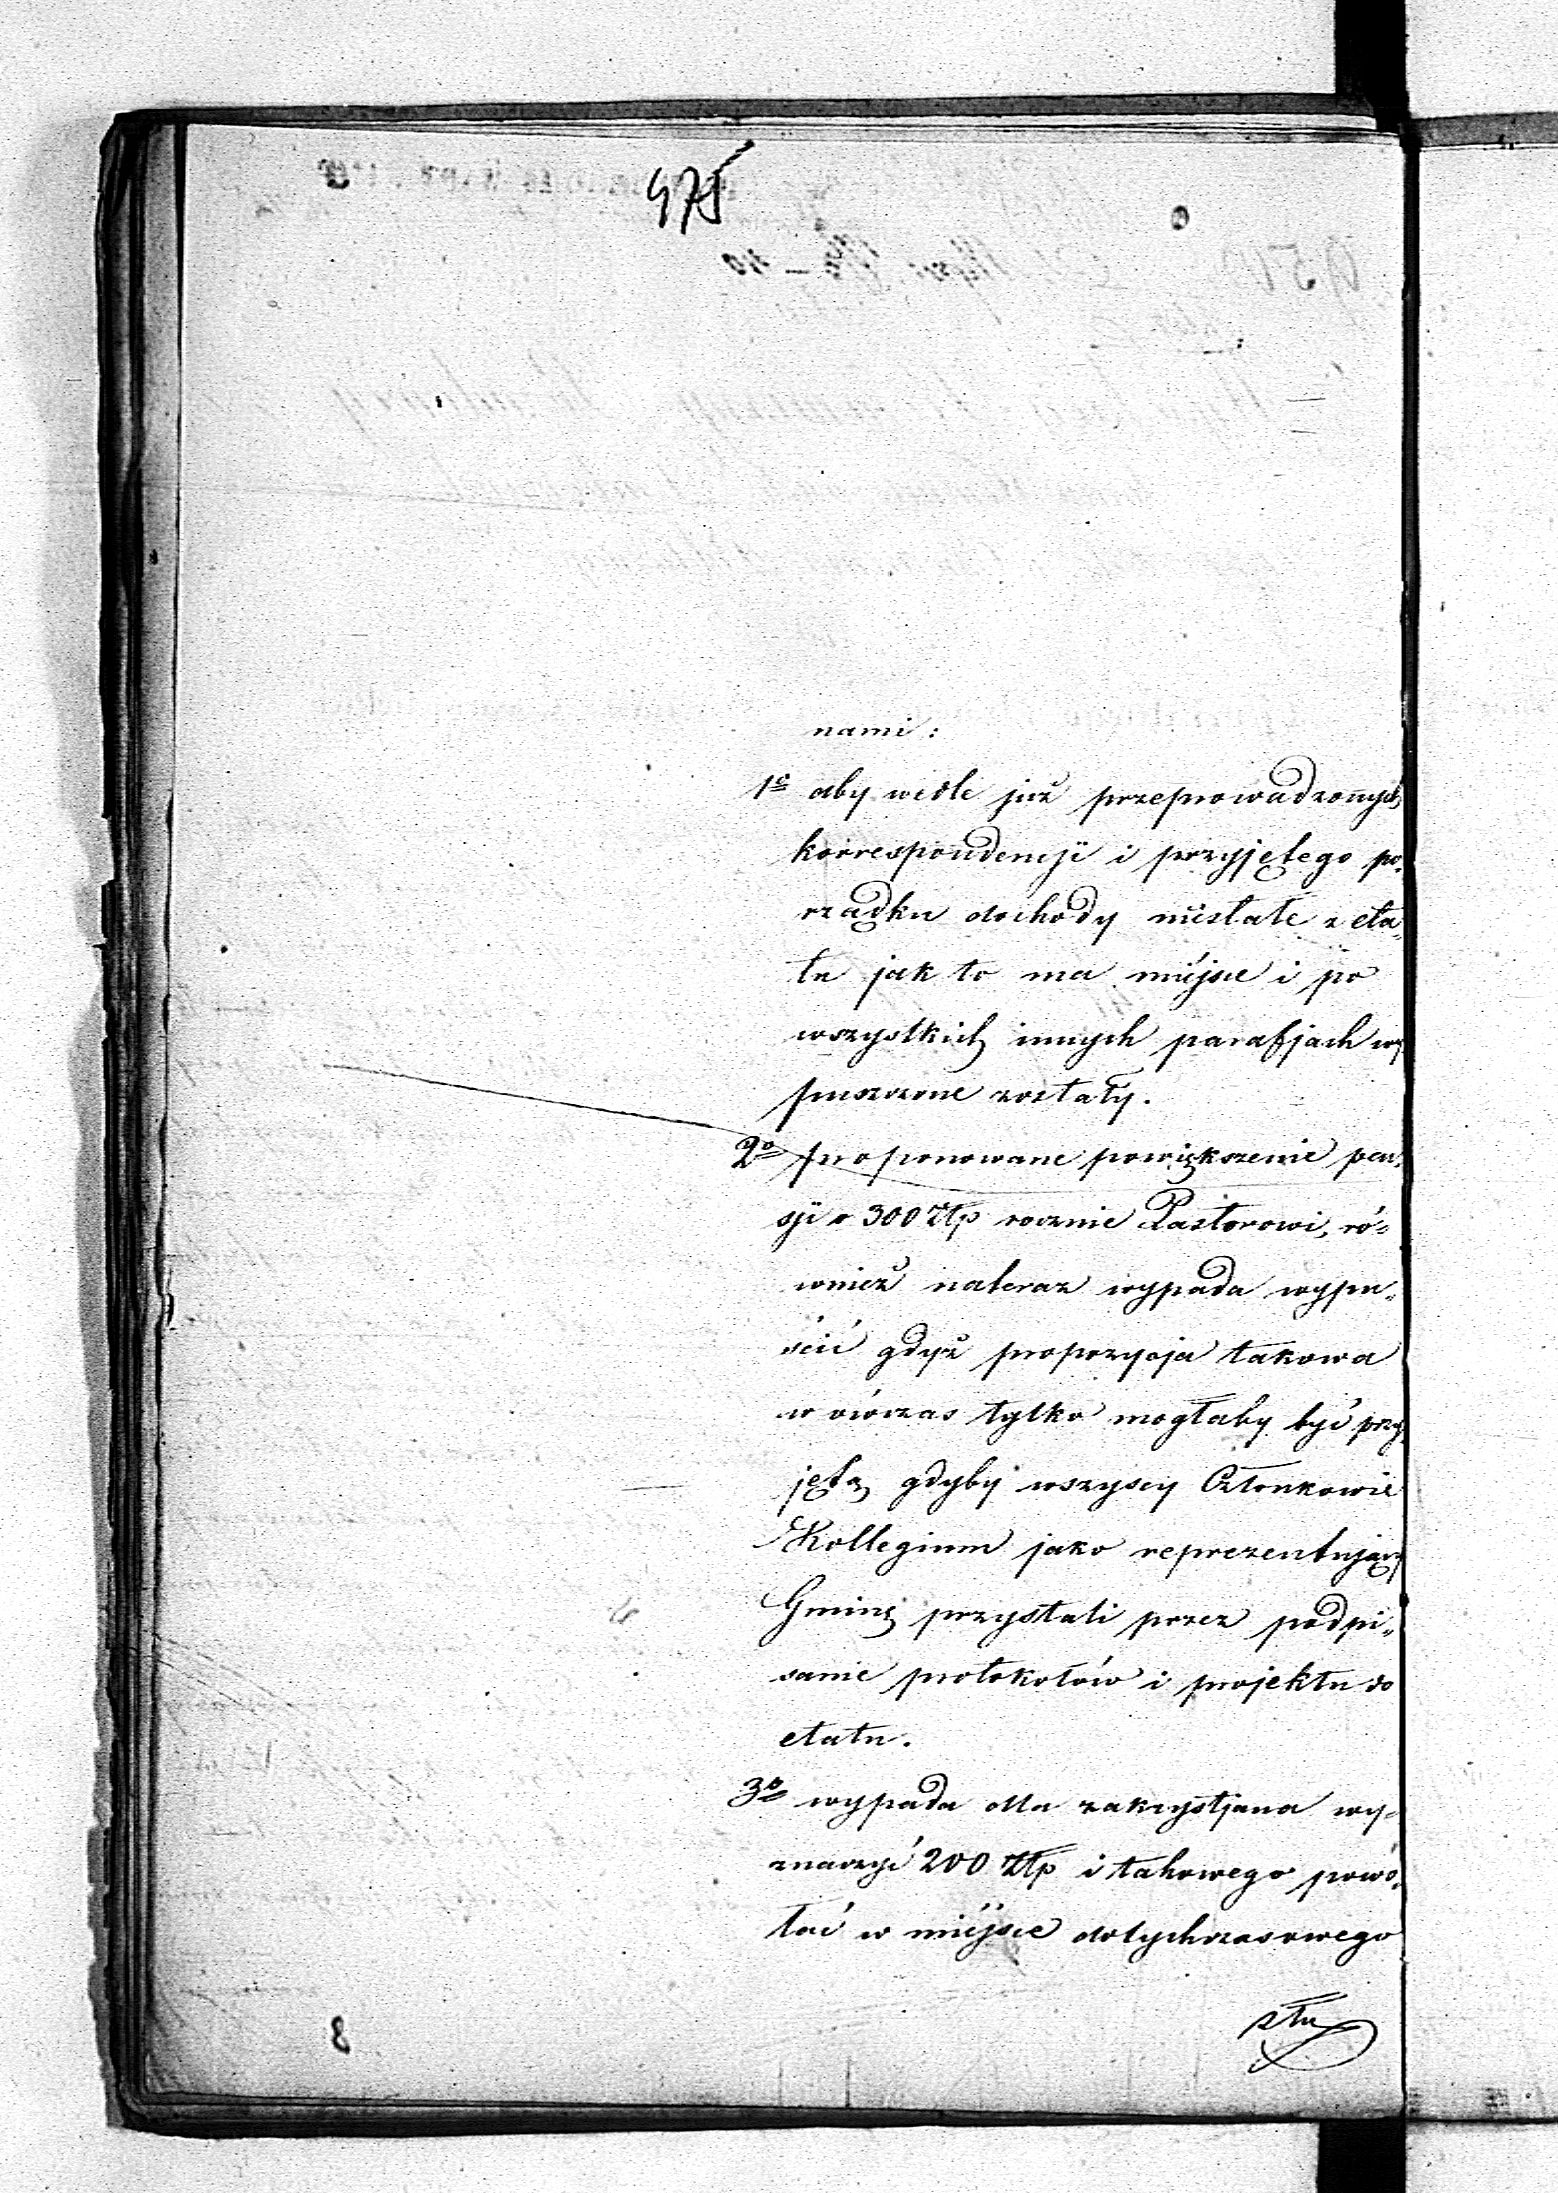 475
nami:
1o aby wedle już przeprowadzonych
korrespondencji i przyjętego po„
rządku dochody niestałe z eta„
tu jak to ma miéjsce i po
wszystkich innych parafjach wy„
puszczone zostały.
2o proponowane powiększenie pen„
sji o 300 Złp rocznie Pastorowi, ró„
wnież nateraz wypada wypu„
ścić gdyż propozycja takowa
w ówczas tylko mogłaby być przy„
jętą, gdyby wszyscy Członkowie
Kollegium jako reprezentujący
Gminę przystali przez podpi„
sanie protokołów i projektu do
etatu.
3o wypada dla zakrystjana wy„
znaczyć 200 Złp i takowego powo„
łać w miéjsce dotychczasowego
słu